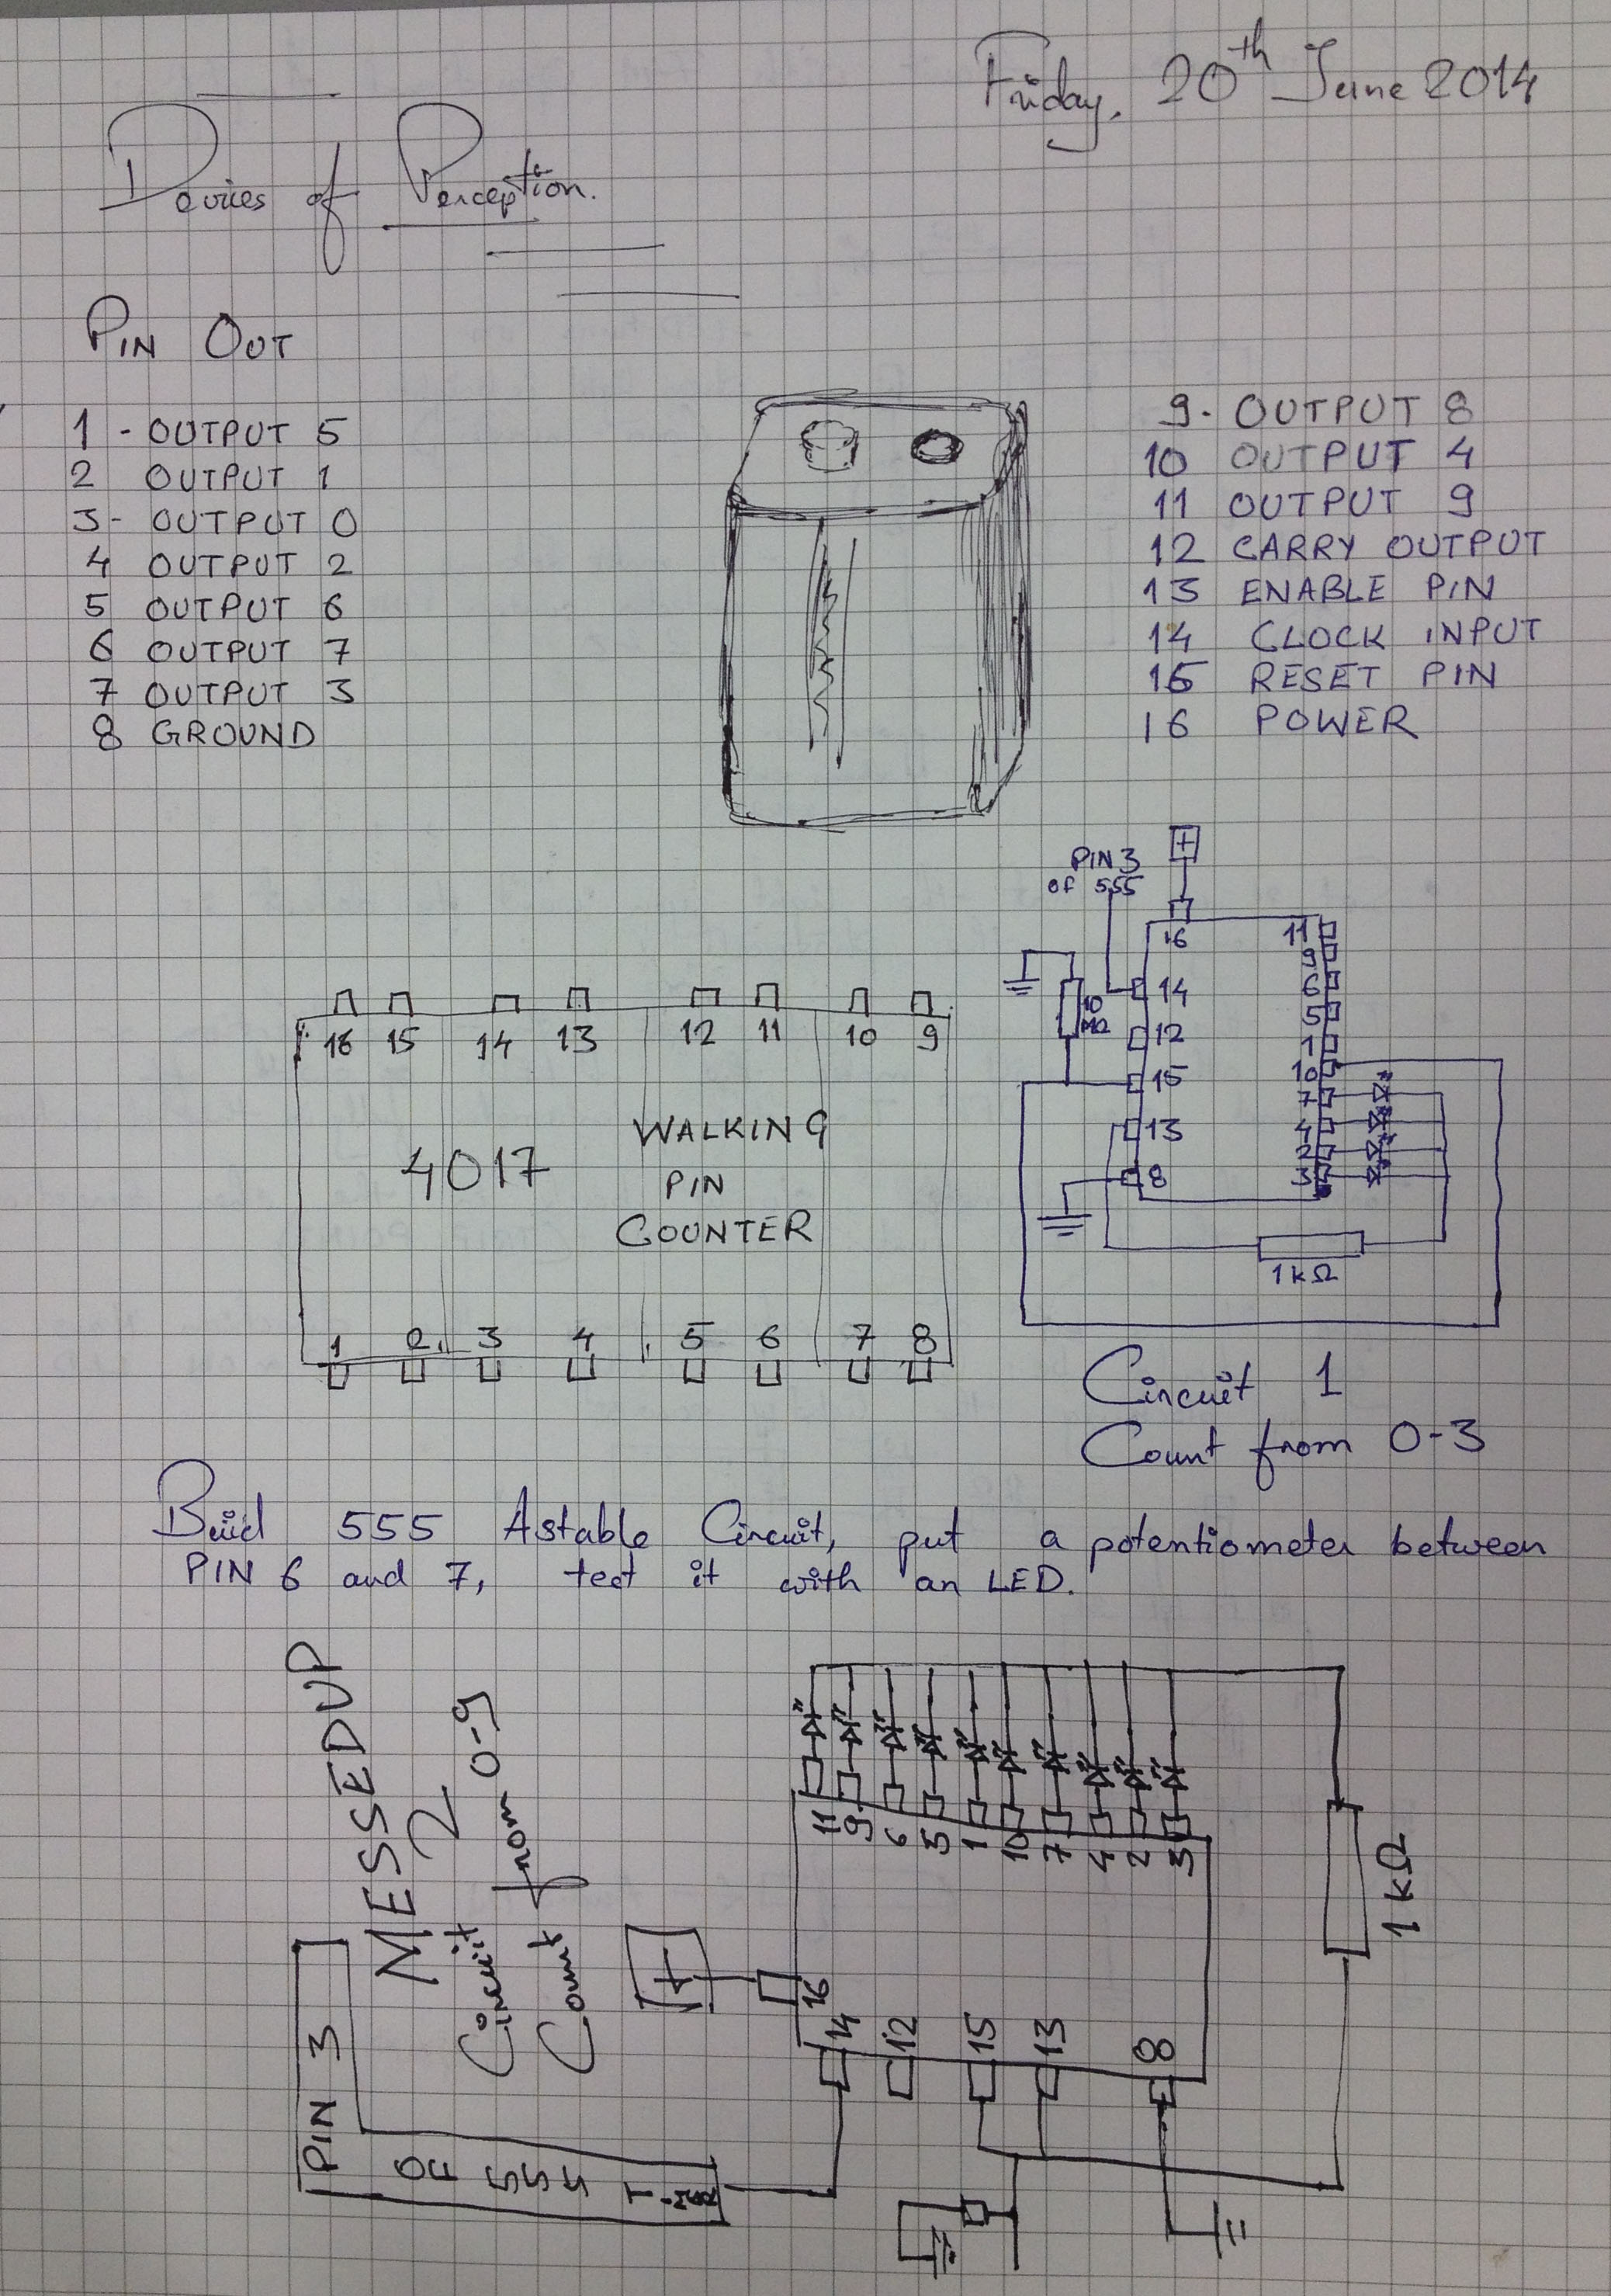 Friday, 20th June 2014
Devices of Perception.
PIN OUT
1 - OUTPUT 5
2 OUTPUT 1
3- OUTPUT 0
4 OUTPUT 2
5 OUTPUT 6
6 OUTPUT 7
7 OUTPUT 3
8 GROUND
9- OUTPUT 8
10 OUTPUT 4
11 OUTPUT 9
12 CARRY OUTPUT
13 ENABLE PIN
14 CLOCK INPUT
15 RESET PIN
16 POWER
16 15 14 13 12 11 10 9
4017
WALKING
PIN
COUNTER
1 2 3 4 5 6 7 8
PIN 3
of 555
+
16
14
12
15
13
8
11
9
6
5
1
10
7
4
2
3
10
MΩ
1kΩ
Circuit 1
Count from 0-3
Build 555 Astable Circuit, put a potentiometer between
PIN 6 and 7, test it with an LED.
PIN 3
OF 555
MESSEDUP
Circuit 2
Count from 0-9
+
16
14
12
15
13
8
11
9
6
5
1
10
7
4
2
3
1kΩ